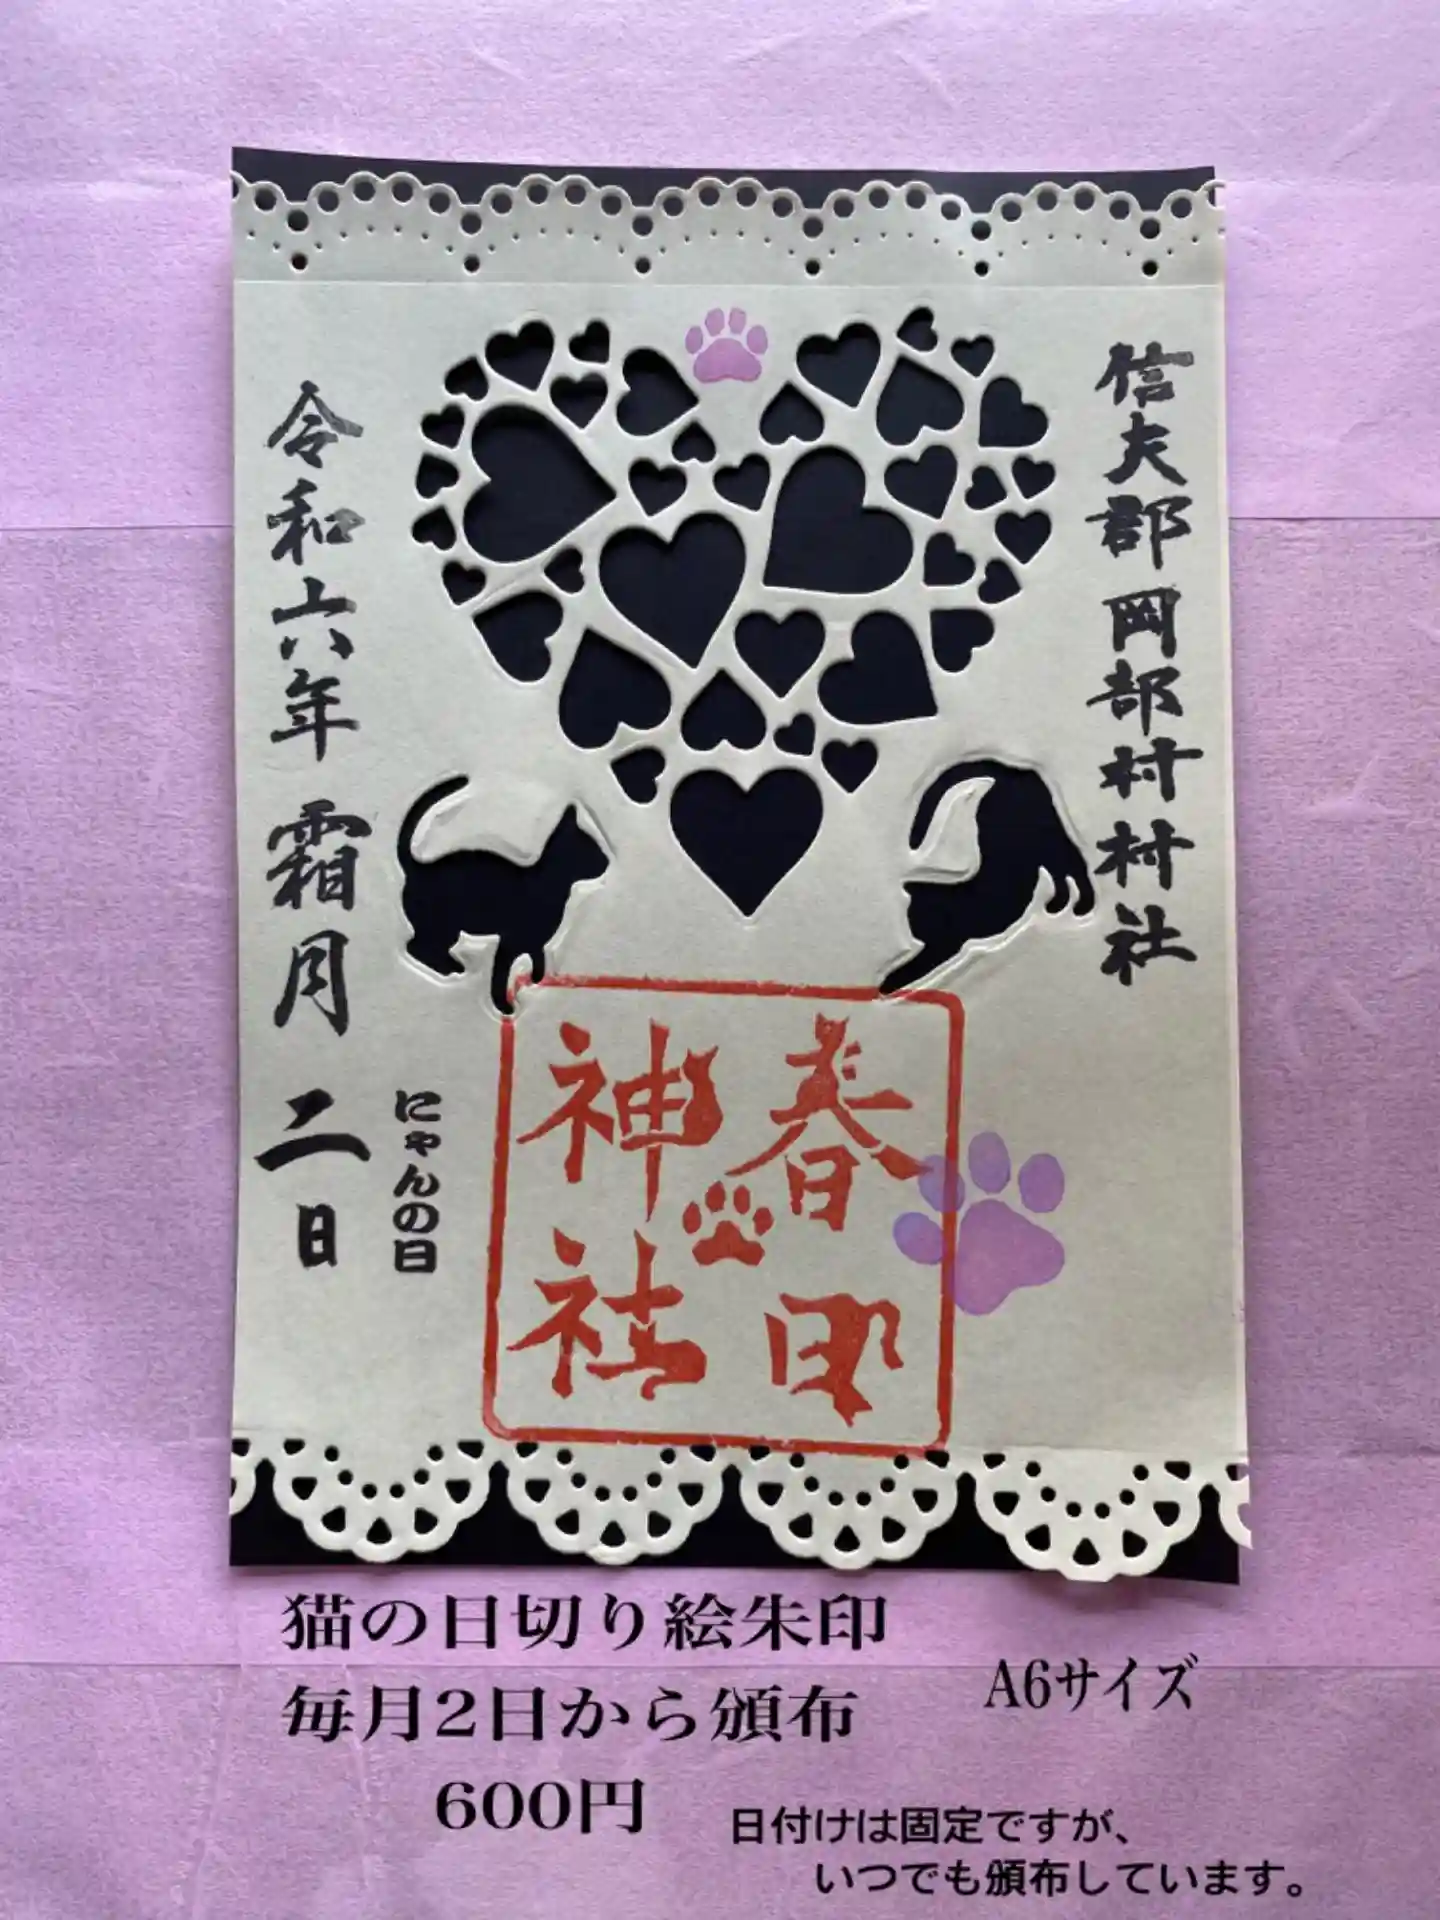 信夫郡岡部村村社
春日
神社
にゃんの日
令和六年 霜月 二日
猫の日切り絵朱印
A6サイズ
毎月2日から頒布
600円
日付けは固定ですが、
いつでも頒布しています。